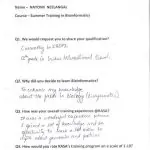 Name - NAYOMI NEELANGAL
Course - Summer Training in Bioinformatics
Q1. We would request you to share your qualification?
I currently in
12th grade in Indian International School.
Q2. Why did you decide to learn Bioinformatics?
To enhance my knowledge
about the field in Biology (Bioinformatics)
Q3. How was your overall training experience @RASA?
It was a wonderful experience where
I gained a lot of knowledge and an
opportunity to have a lab
about genomics and
Q4. How would you rate RASA's training program on a scale of 1-10?